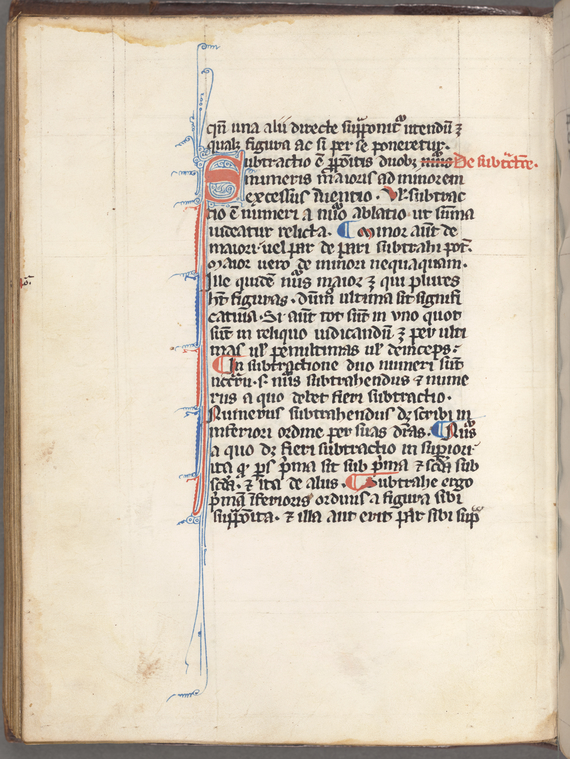 qn̄ una alii directe supponit̃ intendūt ⁊
qualis figura ac si per se poneretur.
Subtractio ē ꝓpositis duobꝫ nũis De subtctõe.
numeris maioris ad minorem
excessus inuentio. Vl̃ subtrac
tio ē numeri a nũo ablatio ut sũma
uideatur relicta. ¶ Minor aūt de
maiori uel par de pari subtrahi pot̃.
Maior uero de minori nequaquam.
Ille quidē nũs maior ꝫ qui plures
hꝫ figuras. dũm̃ ultima sit signifi
catiua. Si aūt tot sūt in vno quot
sūt in reliquo iudicandū ꝫ per ulti
mas ul̃ penultimas ul̃ deinceps.
¶ In subtractione duo numeri sūt
necc̃ii. s. nũs subtrahendus ⁊ nume
rus a quo debet fieri subtractio.
Numerus subtrahendus dꝫ scribi in
inferiori ordine per suas dr̃as. ¶ Nũs
a quo dꝫ fieri subtractio in suꝑiori
ita q̃ p̃ma sit sub p̃ma ⁊ sc̃da sub
sc̃da. ⁊ ita de aliis. ¶ Subtrahe ergo
p̃mā īferioris ordinis a figura sibi
supp̃oita. ⁊ illa aut erit par sibi sup̃